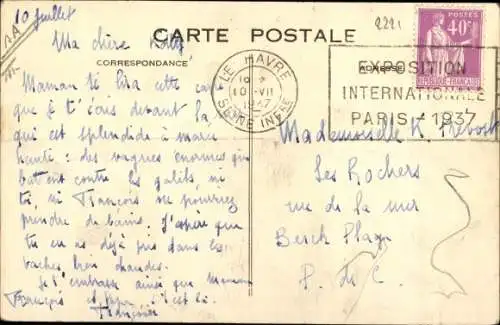 10 juillet
2221
CARTE POSTALE
Ma chère
CORRESPONDANCE
ADRESSE
Maman te lira cette carte
que je t'écris devant la
qui est splendide à marée
haute : des vagues énormes qui
battent contre les galets, ni
toi, ni François ne pourriez
prendre de bains. J'espère que
tu en as déjà pris dans les
bâches bien chaudes.
Je t'embrasse ainsi que Maman
François et
Françoise
LE HAVRE
10 -VII
1937
SEINE INFRE
POSTES
40c
REPUBLIQUE FRANÇAISE
EXPOSITION
INTERNATIONALE
PARIS - 1937
Mademoiselle K Prévost
Les Rochers
rue de la mer
Berck Plage
P. de C.